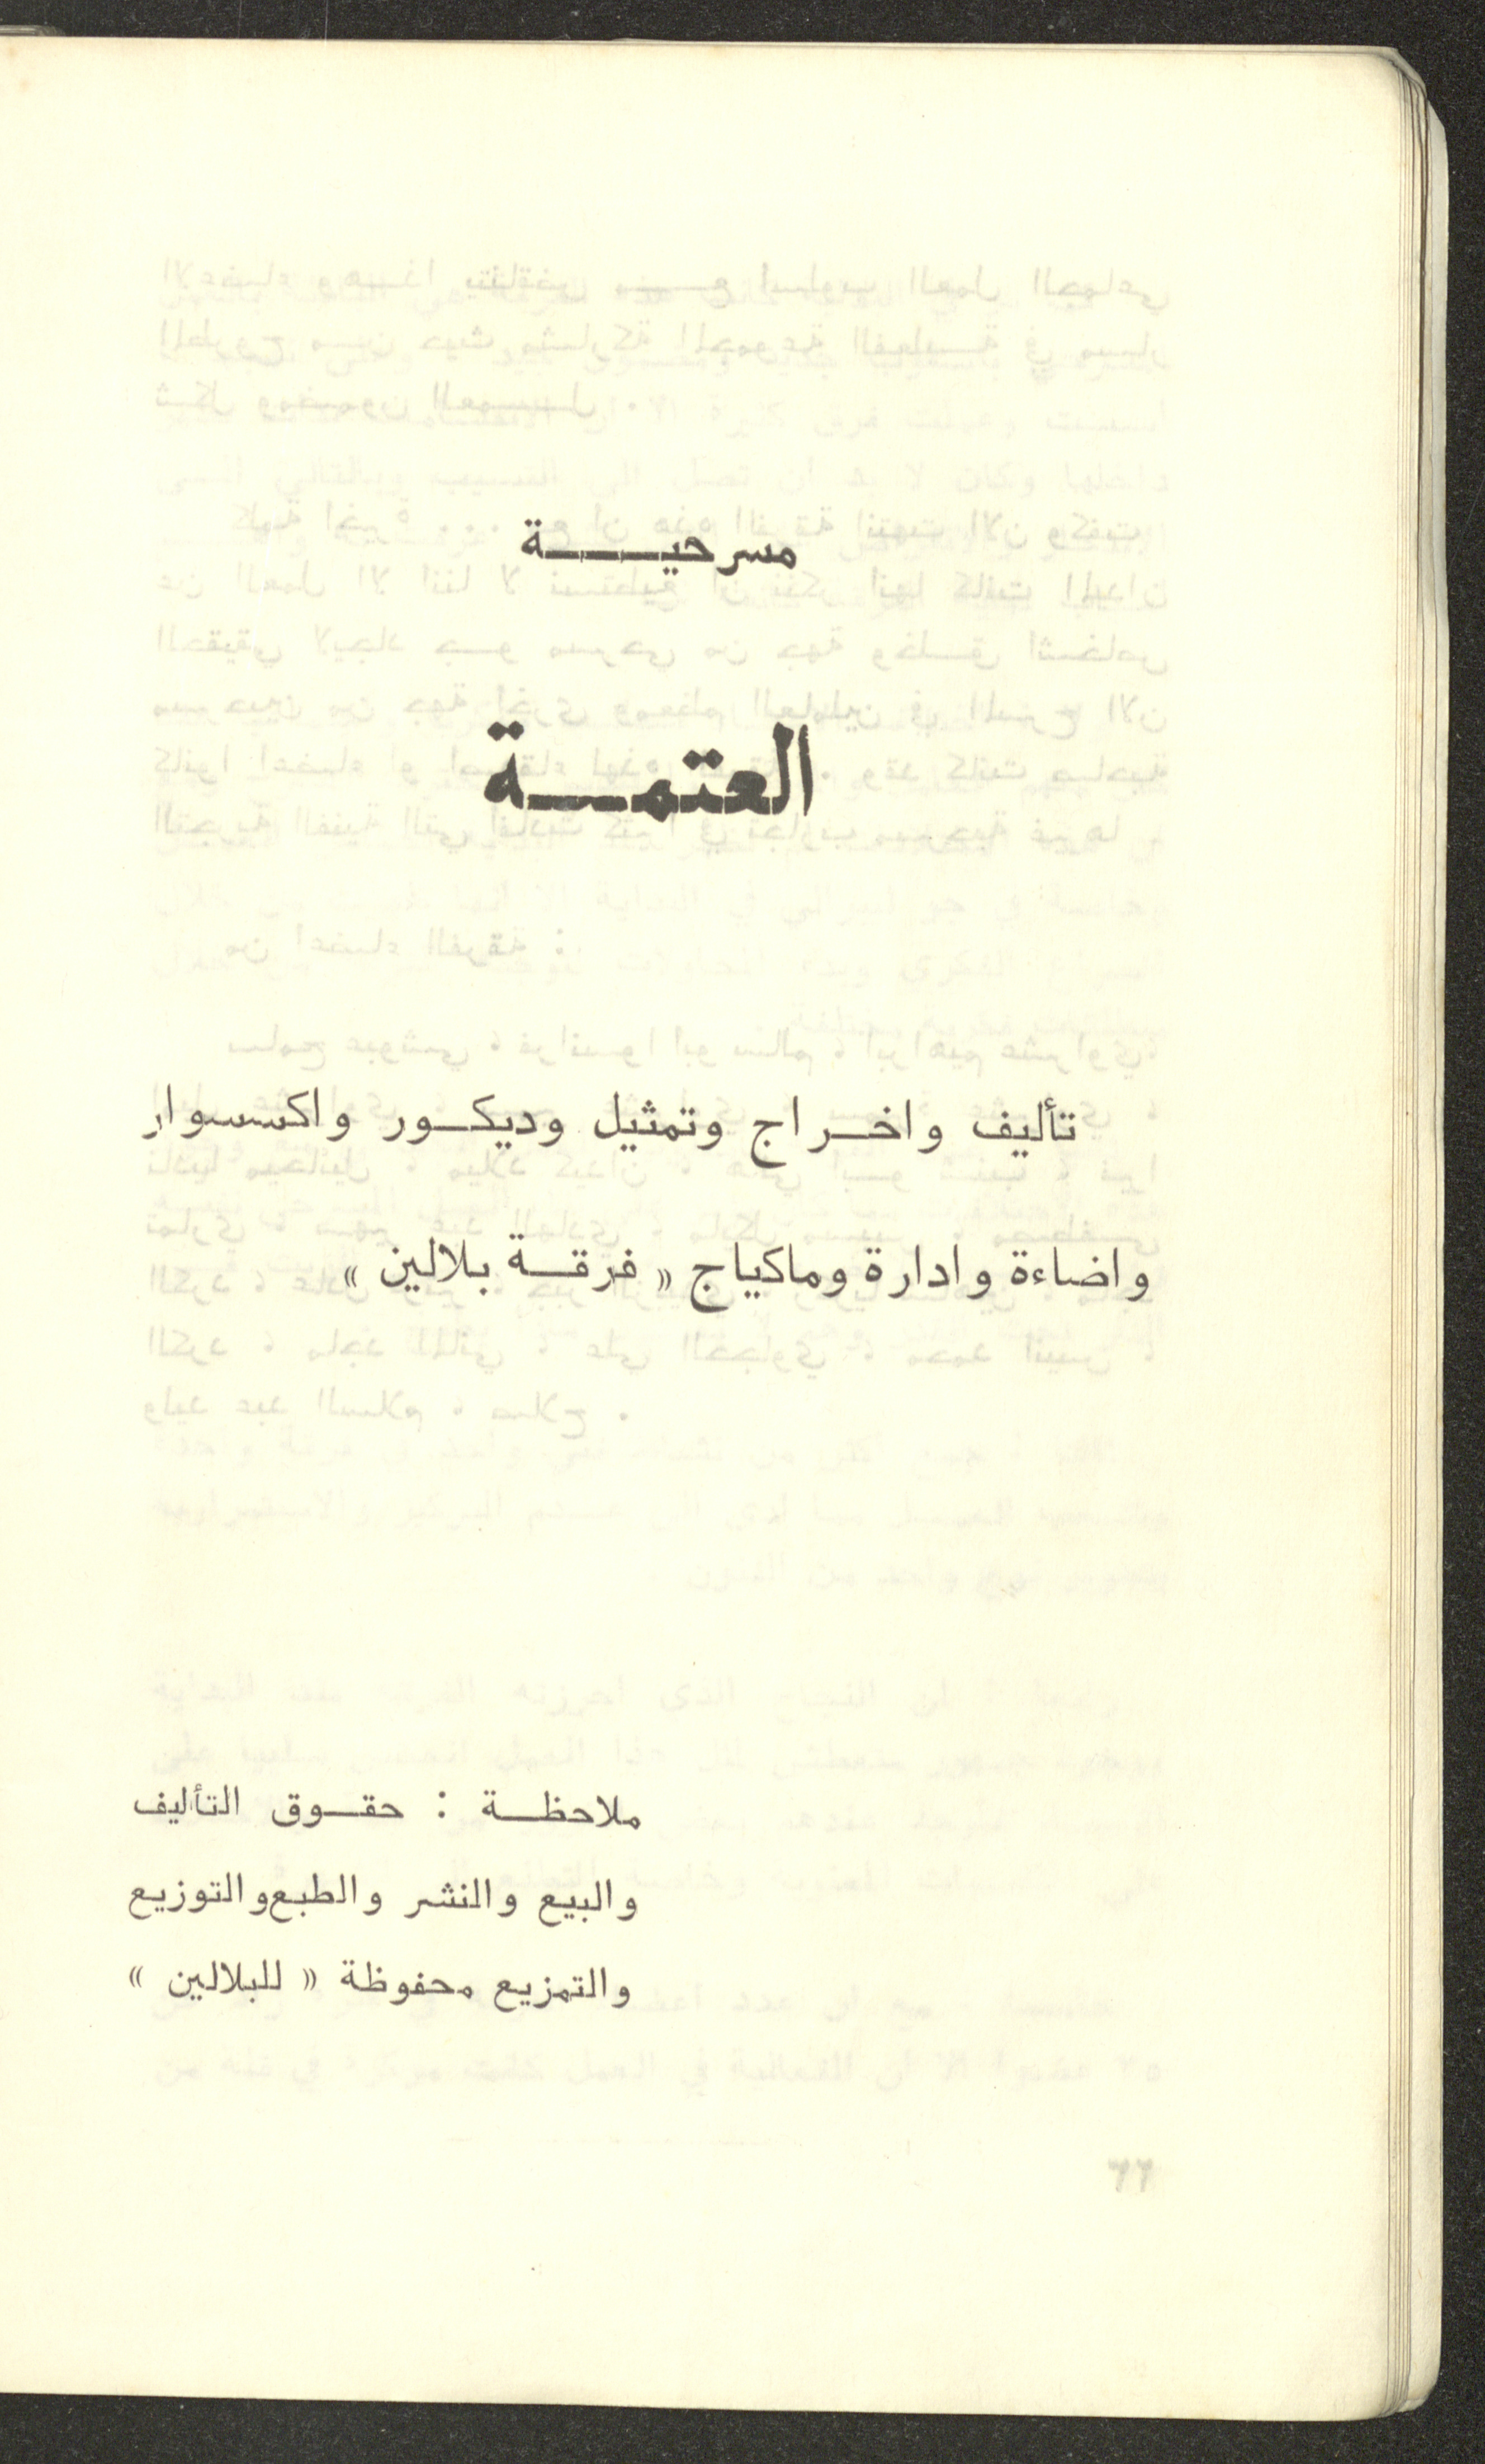 مسرحيـــــة
العتمـــة
تأليف واخــراج وتمثيل وديكــور واكسسوار
واضاءة وادارة وماكياج « فرقــة بلالين »
ملاحظــة : حقــوق التأليف
والبيع والنشر والطبع والتوزيع
والتمزيع محفوظة « للبلالين »